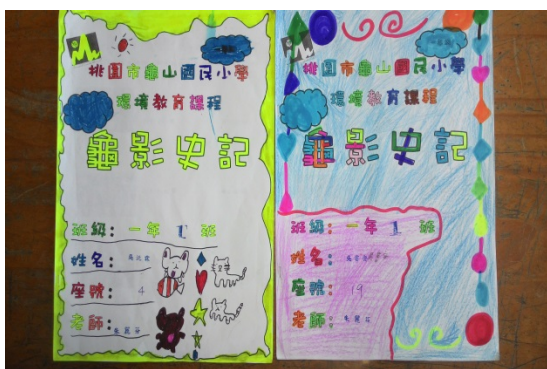 桃園市龜山國民小學
環境教育課程
龜影史記
班級：一年 1 班
姓名：
座號： 4
老師：
桃園市龜山國民小學
環境教育課程
龜影史記
班級：一年 1 班
姓名：
座號： 19
老師：